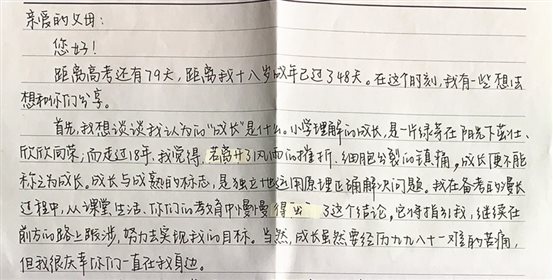 亲爱的父母:
您好!
距离高考还有79天,距离我十八岁成年已过了48天。在这个时刻,我有一些想法
想和你们分享。
首先,我想谈谈我认为的“成长”是什么。小学理解的成长,是一片绿芽在阳光下茁壮、
欣欣向荣;而走过18年,我觉得,若离开了风雨的摧折、细胞分裂的镇痛,成长便不能
称之为成长。成长与成熟的标志,是独立地运用原理正确解决问题。我在备考的漫长
过程中,从课堂、生活、你们的教育中慢慢得出了这个结论,它将指引我,继续在
前方的路上跋涉,努力去实现我的目标。当然,成长虽然要经历九九八十一难的苦痛,
但我很庆幸你们一直在我身边。